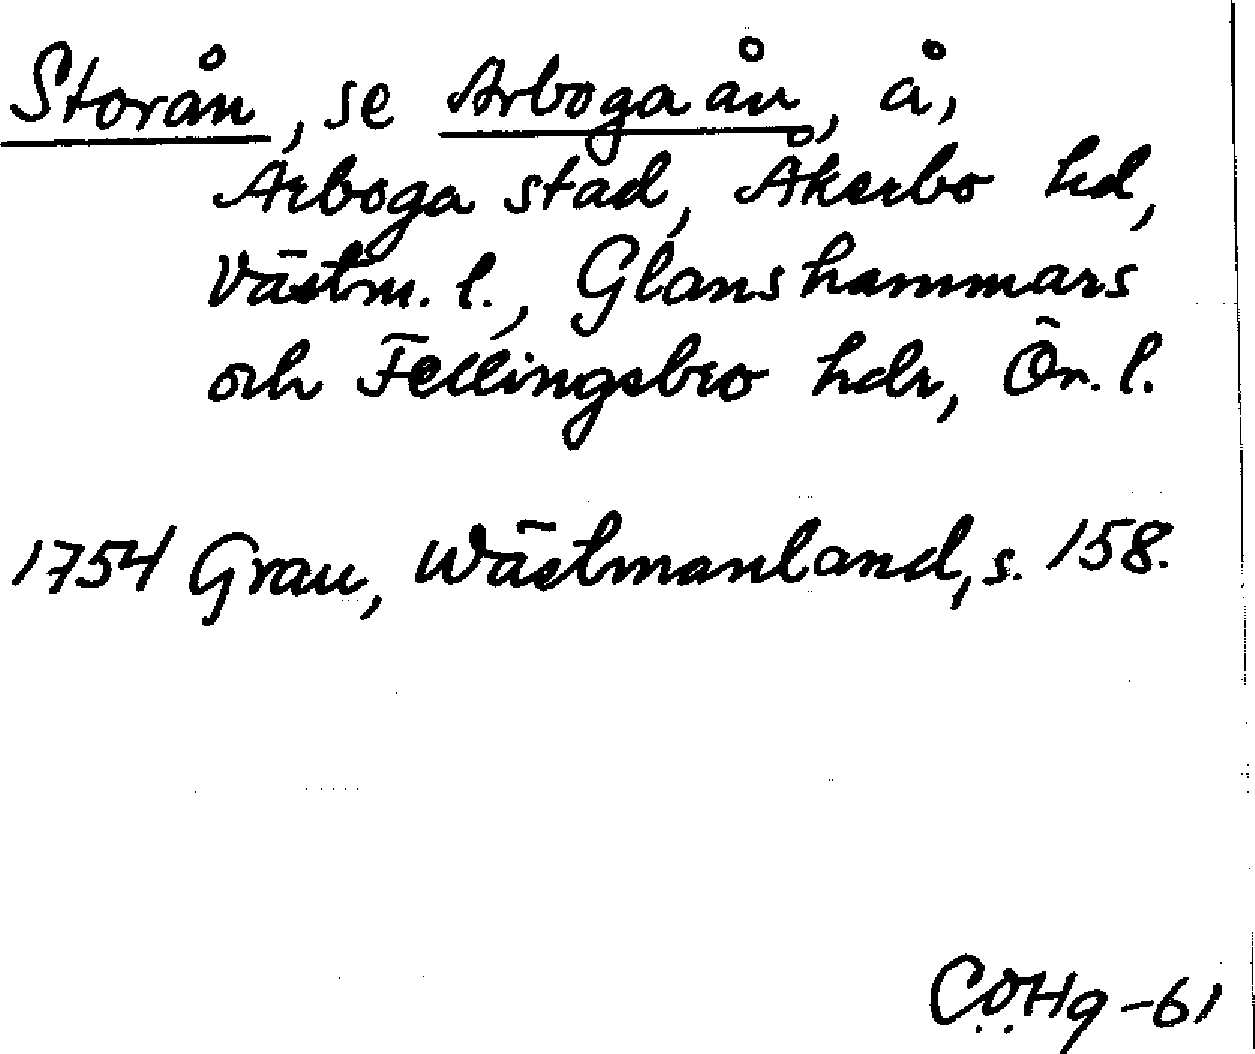 Storån, se Arbogaån, å,
Arboga stad, Åkerbo hd,
Västm. l., Glanshammars
och Fellingsbro hdr, Ör. l.
1754 Grau, Wästmanland, s. 158.
CÖHg -61